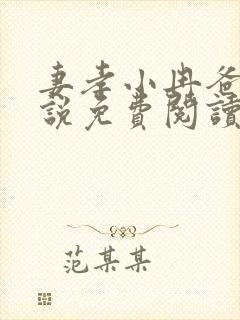 妻孝小冉爸
説免費閱讀
范某某